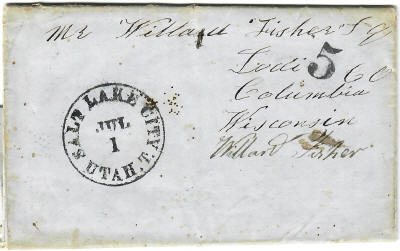 Mr Willard Fisher Sq
Lodi
5
Co
Columbia
Wisconsin
Willard Fisher
SALT LAKE CITY. UTAH.T.
JUL
1